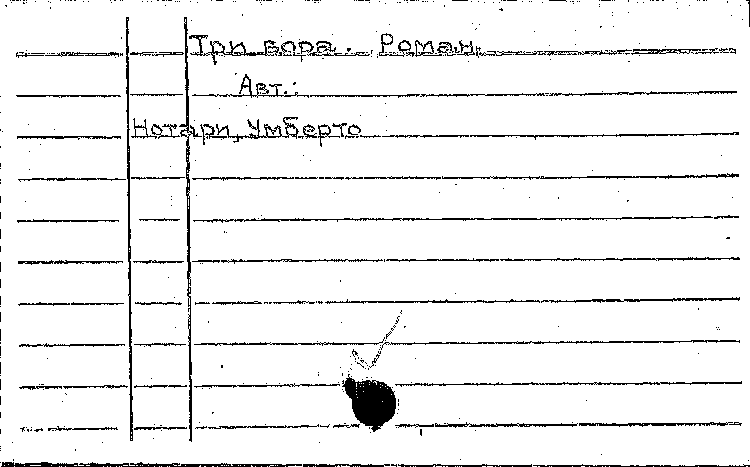 Три вора. Роман.
Авт.:
Нотари, Умберто